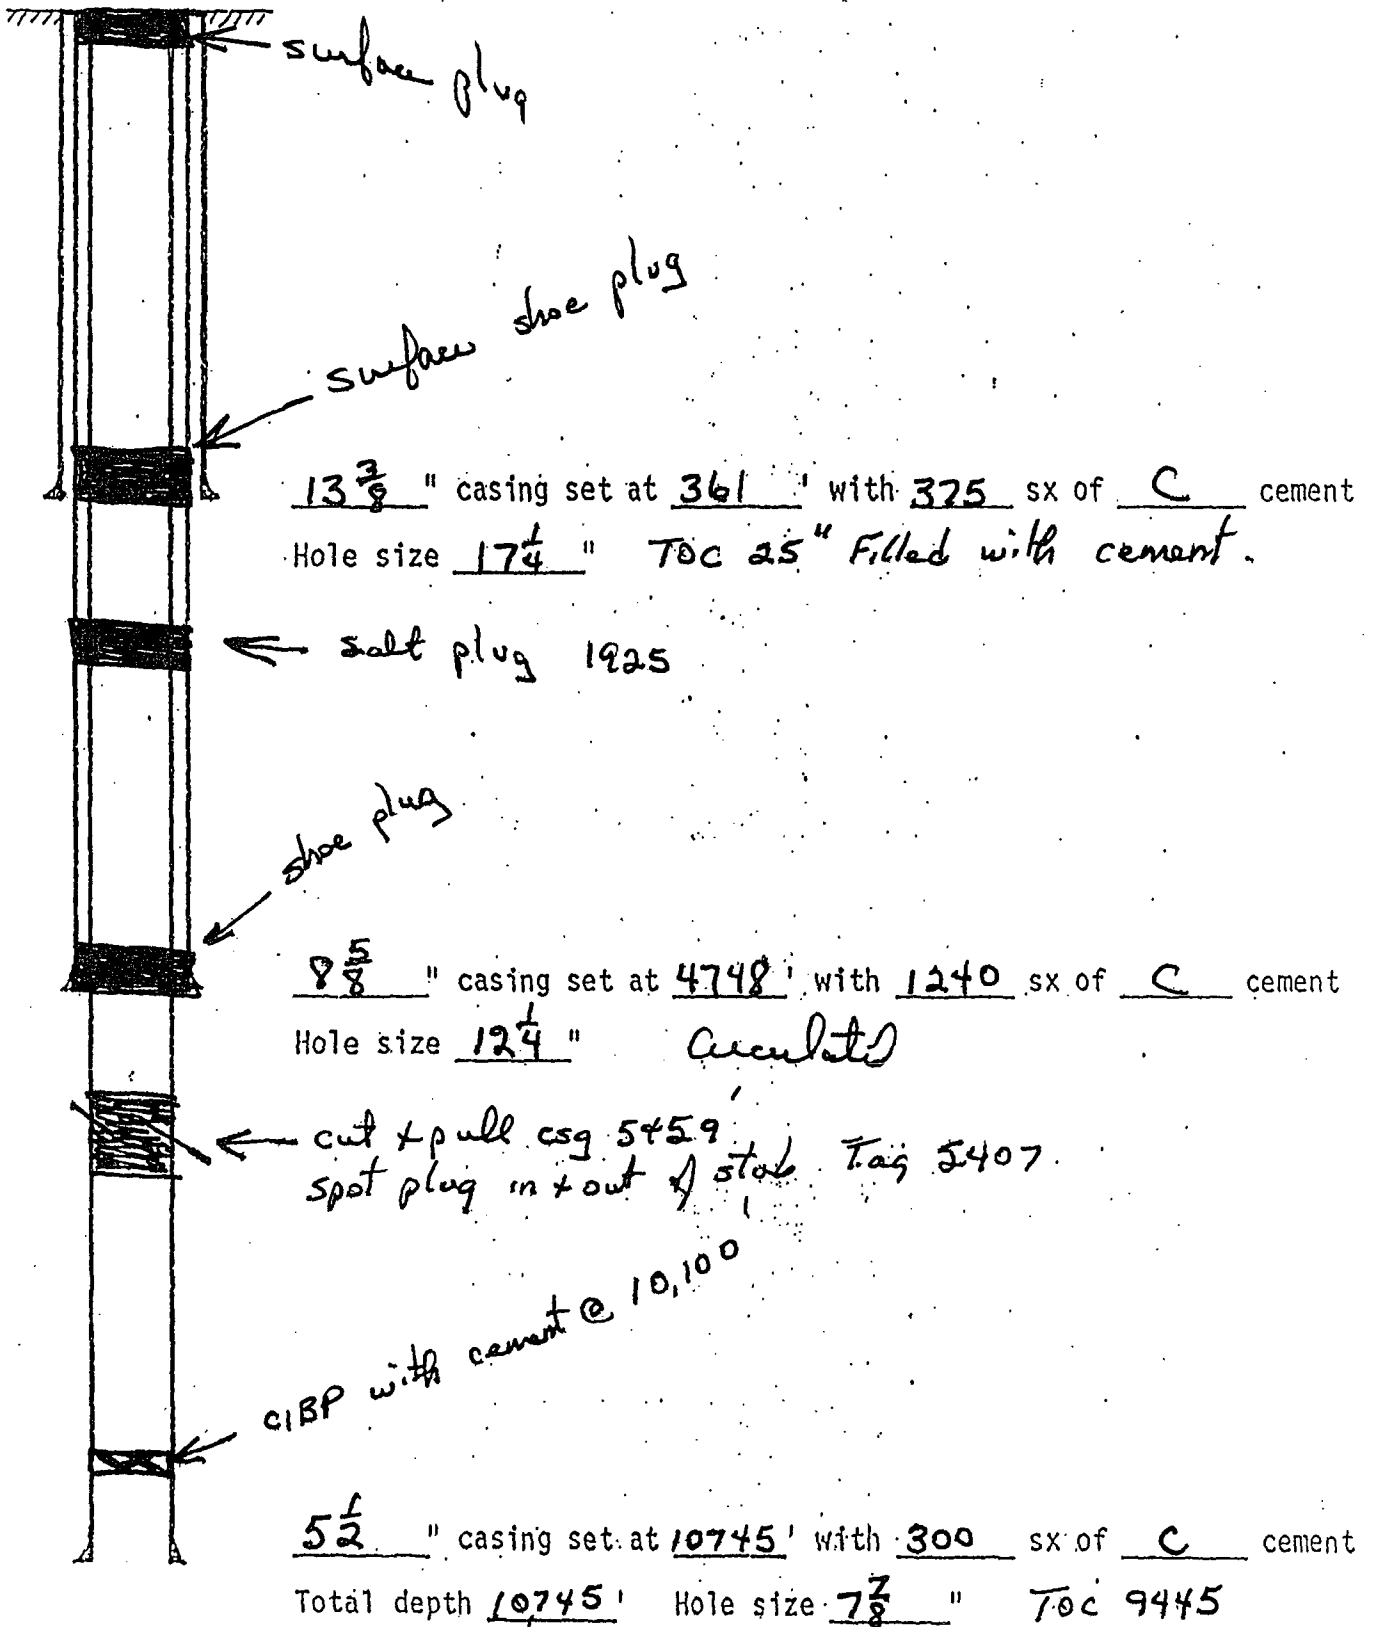 surface plug
surface shoe plug
13 3/8 " casing set at 361 ' with 375 sx of C cement
Hole size 17 1/4 " TOC 25" Filled with cement.
salt plug 1925
shoe plug
8 5/8 " casing set at 4748 ' with 1240 sx of C cement
Hole size 12 1/4 " Circulated
cut + pull csg 5459'
spot plug in + out of stub. Tag 5407.
CIBP with cement @ 10,100'
5 1/2 " casing set at 10745 ' with 300 sx of C cement
Total depth 10,745 ' Hole size 7 7/8 " TOC 9445